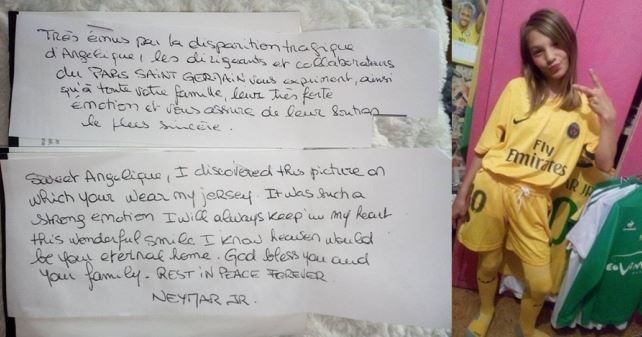 Très émus par la disparition tragique
d'Angélique, les dirigeants et collaborateurs
du PARIS SAINT GERMAIN vous expriment, ainsi
qu'à toute votre famille, leur très forte
émotion et vous assure de leur soutien
le plus sincère.
Sweet Angelique, I discovered this picture on
which your wear my jersey. It was such a
strong emotion I will always keep in my heart
this wonderful smile. I know heaven would
be your eternal home. God bless you and
your family. REST IN PEACE FOREVER
NEYMAR JR.
Fly
Emirates
10
AR JR